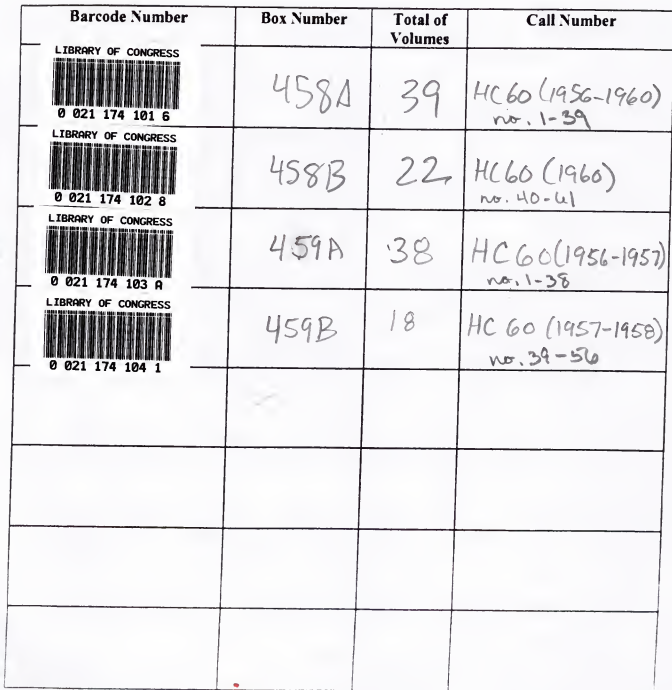 Barcode Number Box Number Total of Volumes Call Number
LIBRARY OF CONGRESS
0 021 174 101 6
458A
39
HC60 (1956-1960)
no. 1-39
LIBRARY OF CONGRESS
0 021 174 102 8
458B
22
HC60 (1960)
no. 40-61
LIBRARY OF CONGRESS
0 021 174 103 A
459A
38
HC60(1956-1957)
no. 1-38
LIBRARY OF CONGRESS
0 021 174 104 1
459B
18
HC 60 (1957-1958)
no. 39-56